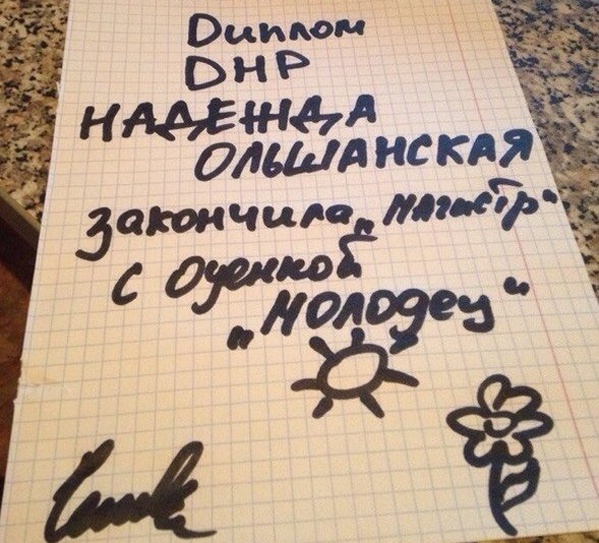 Диплом
DНР
НАДЕЖДА
ОЛЬШАНСКАЯ
закончила „МАгистр“
с Оценкой
„МОЛОдец“